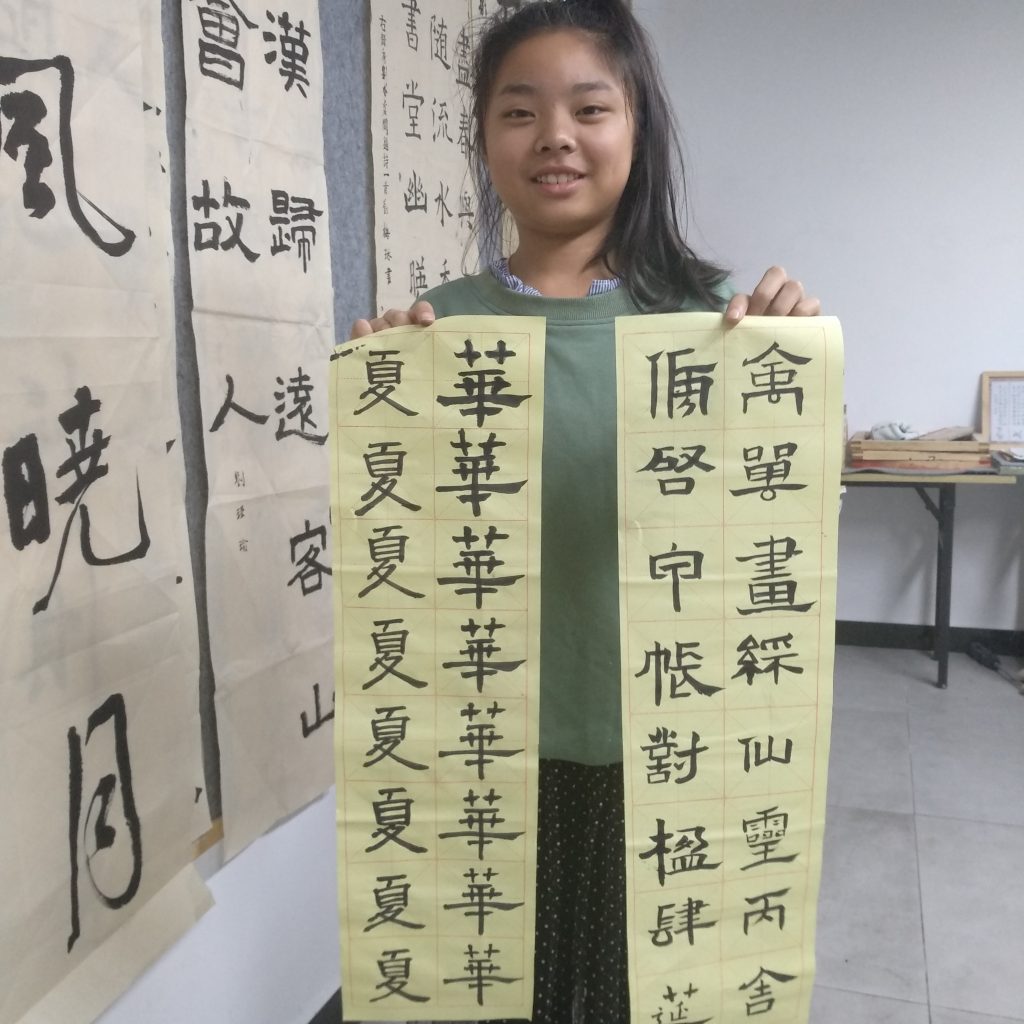 禽嘼畫綵仙靈丙舍
傍啓甲帳對楹肆筵
華華華華華華華華
夏夏夏夏夏夏夏夏
盡春與
隨流水香
書堂幽映
漢歸遠客山
會故人
風曉月